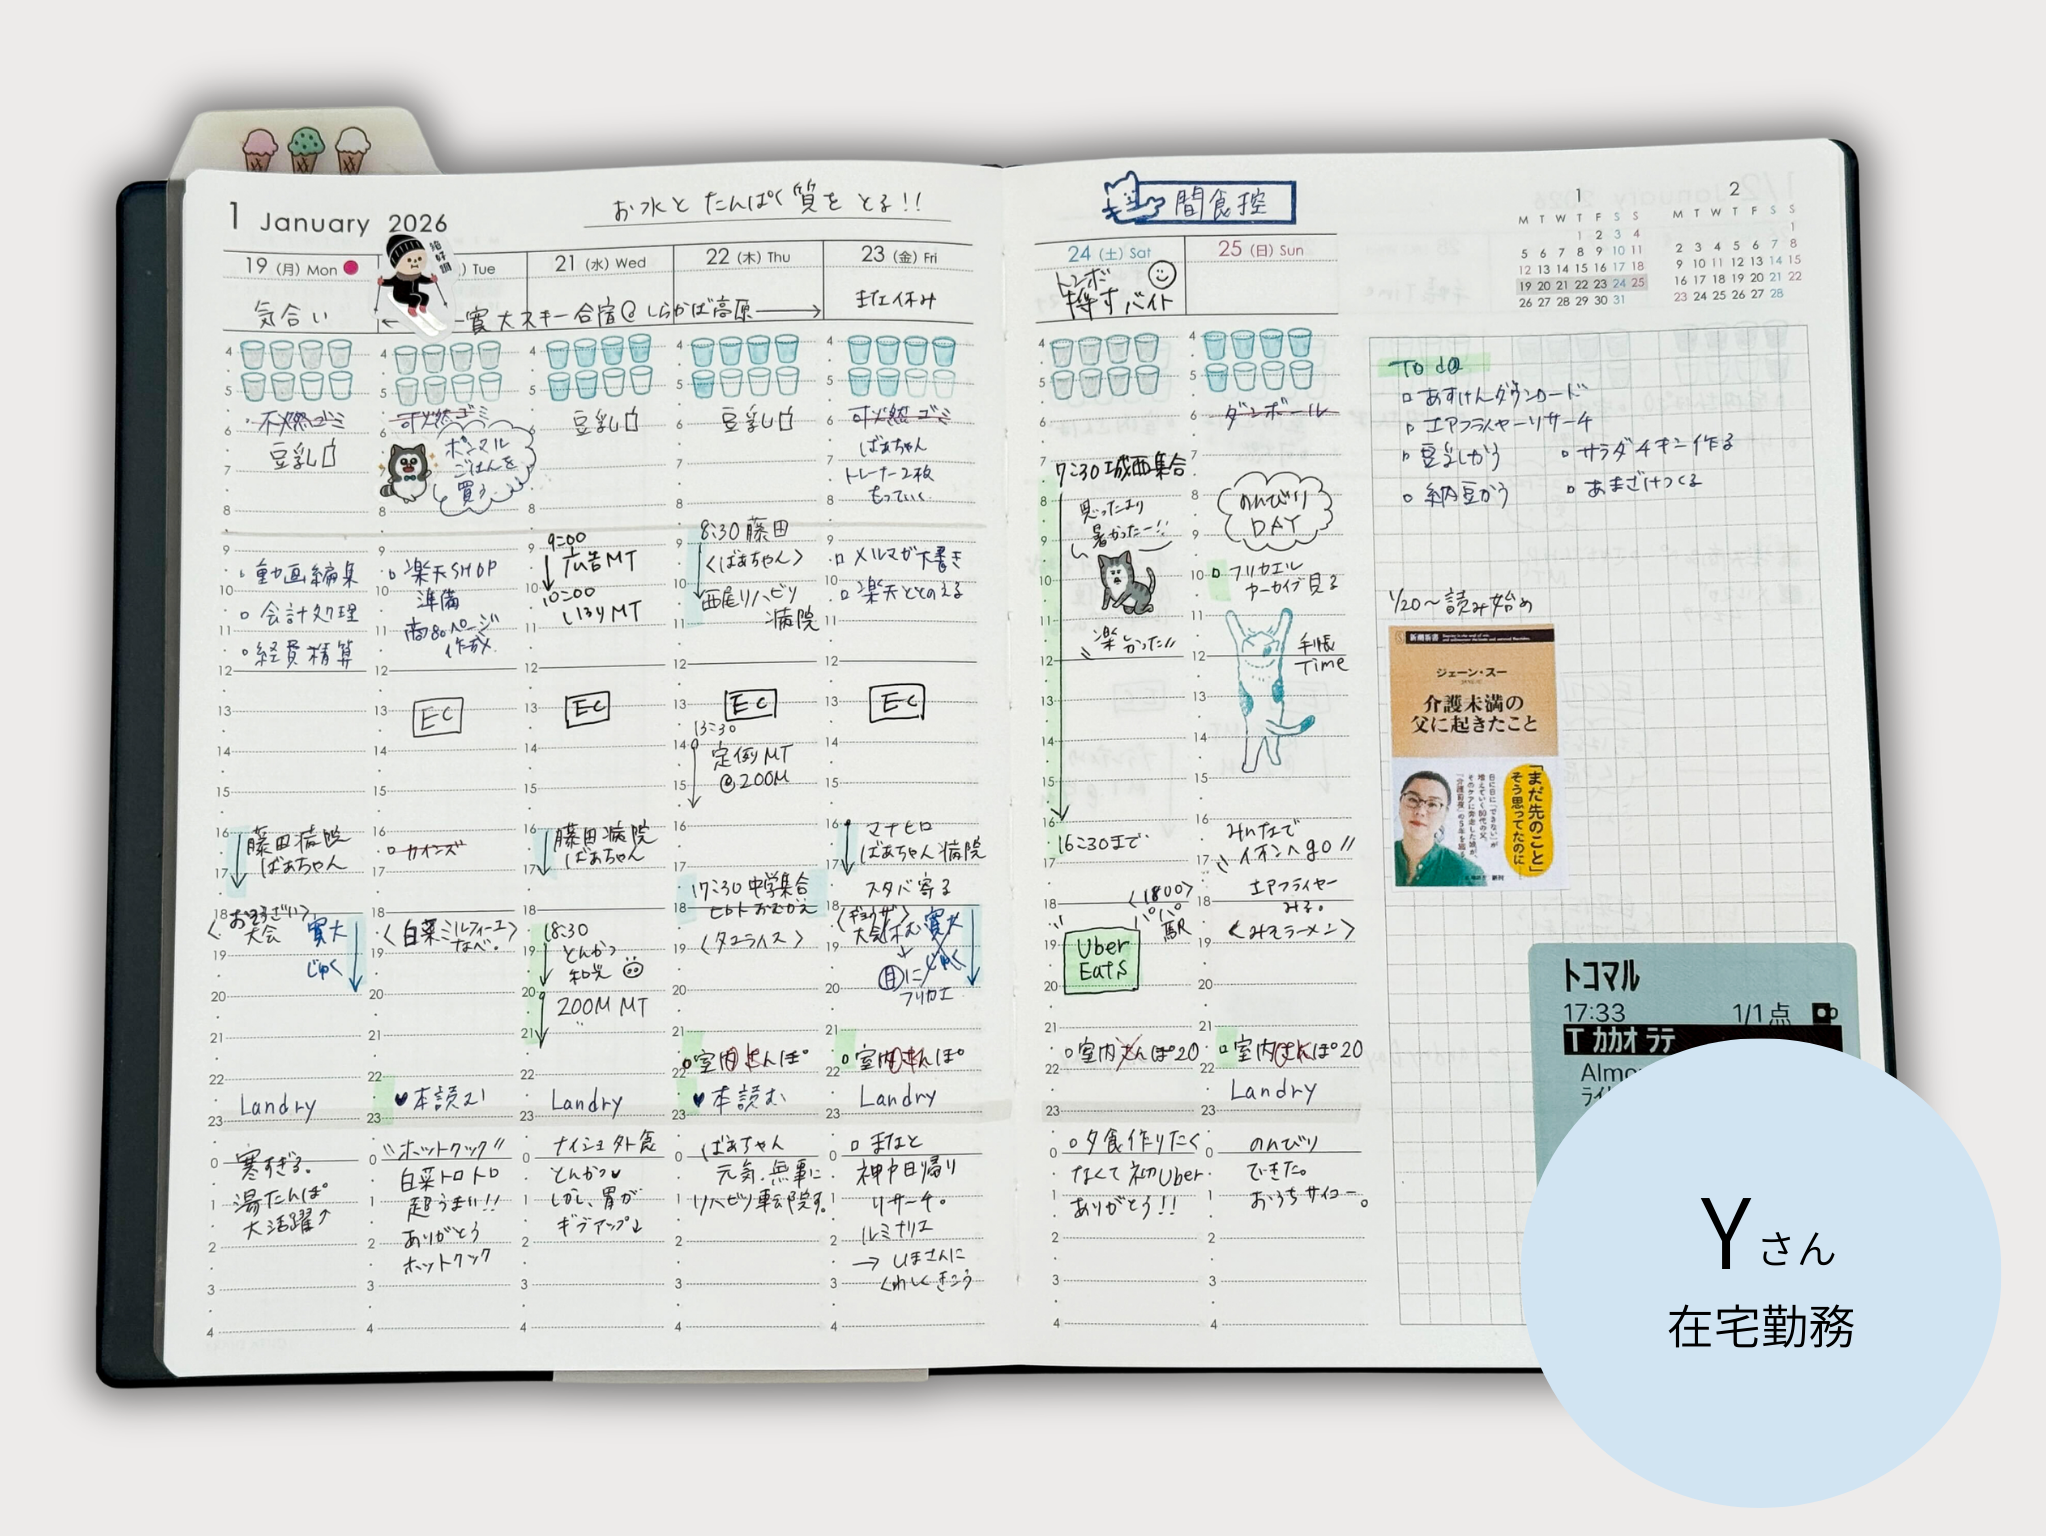 1 January 2026
お水と たんぱく質を とる!!
間食控
19 (月) Mon
Tue
21 (水) Wed
22 (木) Thu
23 (金) Fri
24 (土) Sat
25 (日) Sun
気合い
寛大スキー合宿@しらかば高原
まなと休み
トンボ
バイト
不燃ゴミ
豆乳
動画編集
会計処理
経費精算
藤田病院
ばあちゃん
大会
寛大
じゅく
Landry
寒すぎる。
湯たんぽ
大活躍↑
可燃ゴミ
ポンマル
ごはんを
買う
楽天SHOP
準備
商80ページ
作成
EC
カインズ
〈白菜ミルフィーユ
なべ〉
♥本読む
"ホットクック"
白菜トロトロ
超うまい!!
ありがとう
ホットクック
豆乳
9:00
広告MT
10:00
いろりMT
EC
藤田病院
ばあちゃん
18:30
とんかつ
和光
200M MT
Landry
ナイショ外食
とんかつ♥
しかし、胃が
ギブアップ↓
豆乳
8:30 藤田
〈ばあちゃん〉
西尾リハビリ
病院
EC
13:30
定例MT
@200M
17:30 中学集合
ヒロトおむかえ
〈タコライス〉
室内さんぽ
♥本読む
ばあちゃん
元気、無事に
リハビリ転院す。
可燃ゴミ
ばあちゃん
トレーナー2枚
もっていく
メルマガ下書き
楽天ととのえる
EC
マナヒロ
ばあちゃん病院
スタバ寄る
〈ギョウザ〉
寛大
じゅく
(日)に
フリカエ
室内さんぽ
Landry
まなと
神戸日帰り
リサーチ。
ルミナリエ
→しまさんに
くわしくきこう
7:30 城西集合
思ったより
暑かったー!!
楽しかった!!
16:30まで
〈1800〉
パパ
駅
Uber
Eats
室内さんぽ20
夕食作りたく
なくて初Uber
ありがとう!!
ダンボール
のんびり
DAY
フリカエル
アーカイブ見る
手帳
Time
みんなで
イオンへgo!!
エアフライヤー
みる。
〈みそラーメン〉
室内さんぽ20
Landry
のんびり
できた。
おうちサイコー。
1
M T W T F S S
1 2 3 4
5 6 7 8 9 10 11
12 13 14 15 16 17 18
19 20 21 22 23 24 25
26 27 28 29 30 31
2
M T W T F S S
1
2 3 4 5 6 7 8
9 10 11 12 13 14 15
16 17 18 19 20 21 22
23 24 25 26 27 28
To do
あすけんダウンロード
エアフライヤーリサーチ
豆乳かう
サラダチキン作る
納豆かう
あまざけつくる
1/20〜読み始め
新潮新書
ジェーン・スー
介護未満の
父に起きたこと
「まだ先のこと」
そう思ってたのに
トコマル
17:33 1/1点
T カカオ ラテ
Almo
Yさん
在宅勤務